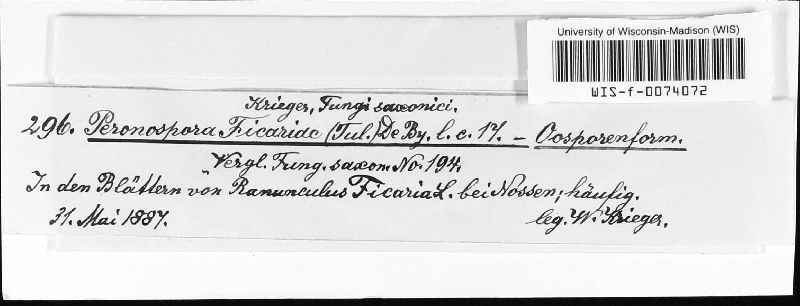 University of Wisconsin-Madison (WIS)
WIS-f-0074072
Krieger, Fungi saxonici.
296. Peronospora Ficariae (Tul.) De By. l. c. 17. – Oosporenform.
Vergl. Fung. saxon. No. 194.
In den Blättern von Ranunculus Ficaria L. bei Nossen; häufig.
31. Mai 1887. leg. W. Krieger.